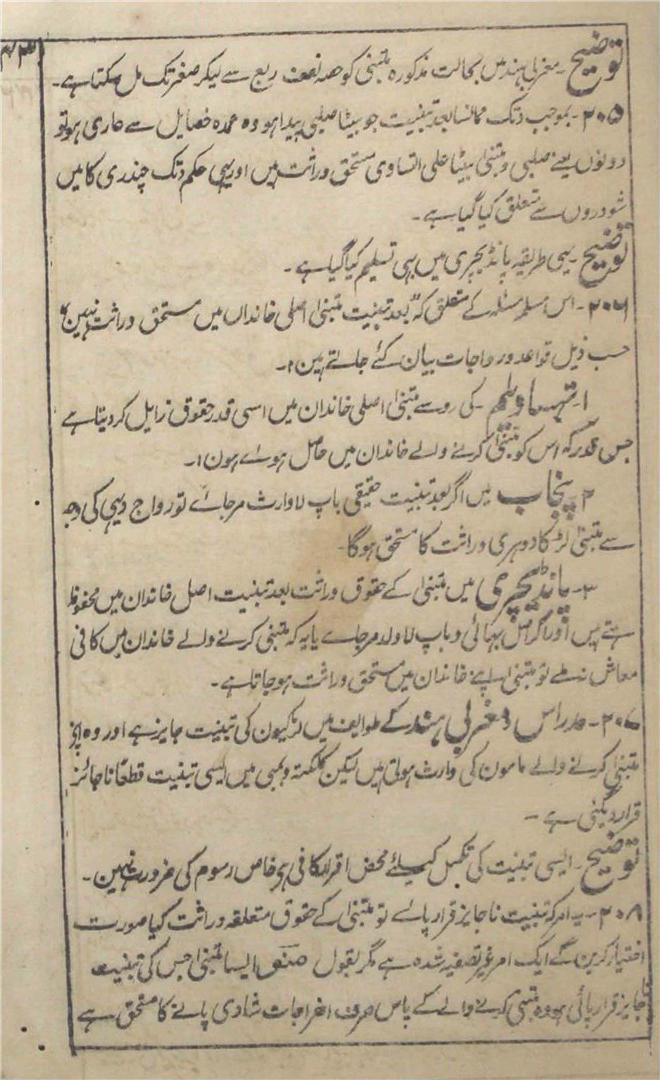 توضیح۔ مغربی ہند میں بحالت مذکورہ متبنی کو حصہ نصف ربع سے لیکر صغر تک مل سکتا ہے۔
۲۰۵۔ بموجب دتک ممانسا بعد تبنیت جو بیٹا صلبی پیدا ہو وہ عمدہ خصایل سے عاری ہو تو
دونوں یعنے صلبی و متبنی بیٹا علی التساوی مستحق وراثت ہیں اور یہی حکم دتک چندری کا میں
شودروں سے متعلق کیا گیا ہے۔
توضیح۔ یہی طریقہ پانڈیچری میں بہی تسلیم کیا گیا ہے۔
۲۰۶۔ اس مسلم مسئلہ کے متعلق کہ بعد تبنیت متبنی اصلی خانداں میں مستحق وراثت نہیں
حسب ذیل قواعد و رواجات بیان کئے جاتے ہین۔
۱۔ کی رو سے متبنی اصلی خاندان میں اسی قدر حقوق زایل کر دیتا ہے
جس قدر کہ اس کو متبنی کرنے والے خاندان میں حاصل ہوے ہون۔
۲ پنجاب میں اگر بعد تبنیت حقیقی باپ لاوارث مرجاے تو رواج دیہی کی وجہ
سے متبنی لڑکا دوہری وراثت کا مستحق ہوگا۔
۳۔ پانڈیچری میں متبنی کے حقوق وراثت بعد تبنیت اصل خاندان میں محفوظ
رہتے ہیں اور اگر اصل بہائی و باپ لاولد مرجاے یا یہ کہ متبنی کرنے والے خاندان میں کافی
معاش نہ ملے تو متبنی اپنے خاندان میں مستحق وراثت ہوجاتا ہے۔
۲۰۷۔ مدراس و مغربی ہند کے طوایف میں لڑکیون کی تبنیت جایز ہے اور وہ اپنے
متبنی کرنے والے مامون کی وارث ہوتی ہیں لیکن کلکتہ و بمبی میں ایسی تبنیت قطعًا ناجائز
قرار دیگئی ہے۔
توضیح۔ ایسی تبنیت کی تکمیل کیلئے محض اقرار کافی ہے خاص رسوم کی ضرورت نہین۔
۲۰۸۔ یہ امر کہ تبنیت ناجایز قرار پاے تو متبنی کے حقوق متعلقہ وراثت کیا صورت
اختیار کرین گے ایک امر غیر تصفیہ شدہ ہے مگر بقول ایسا متبنی جس کی تبنیت
ناجایز قرار پائی ہو وہ متبنی کرنے والے کے پاس صرف اخراجات شادی پانے کا مستحق ہے